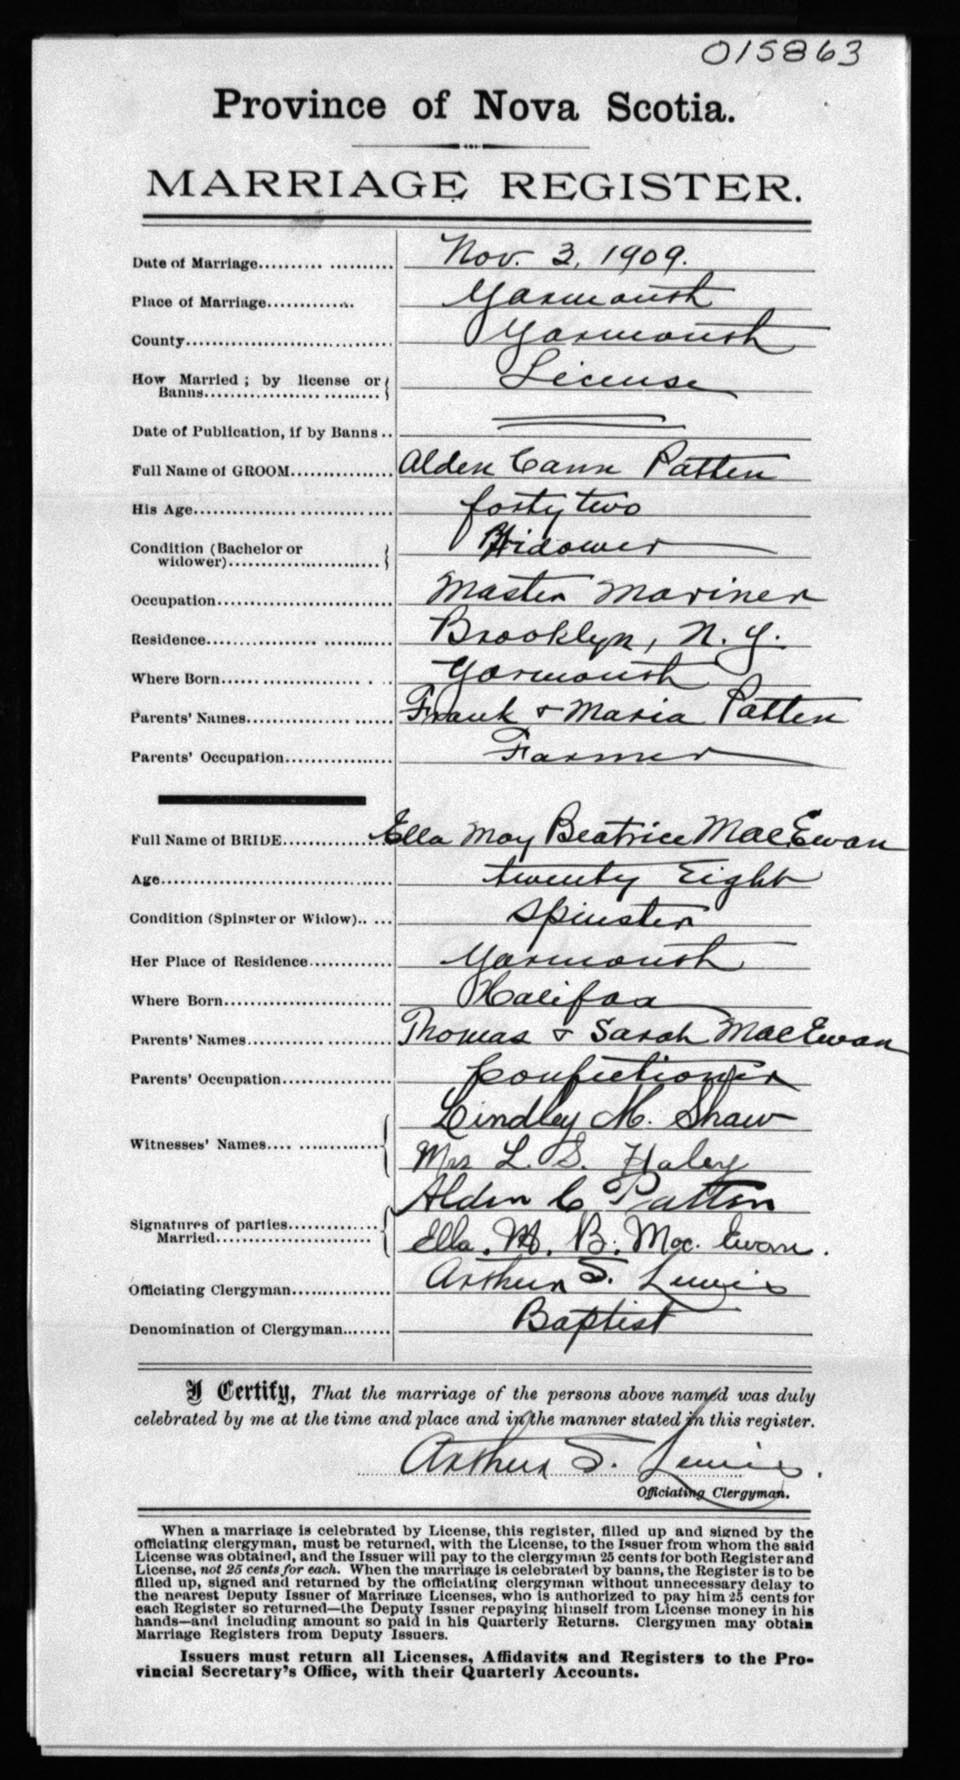 015863
Province of Nova Scotia.
MARRIAGE REGISTER.
Date of Marriage.......... Nov. 3, 1909.
Place of Marriage.......... Yarmouth
County.......... Yarmouth
How Married ; by license or Banns.......... License
Date of Publication, if by Banns ..
Full Name of GROOM.......... Alden Cann Patten
His Age.......... forty two
Condition (Bachelor or widower).......... Widower
Occupation.......... Master Mariner
Residence.......... Brooklyn, N. Y.
Where Born.......... Yarmouth
Parents' Names.......... Frank & Maria Patten
Parents' Occupation.......... Farmer
Full Name of BRIDE.......... Ella May Beatrice MacEwan
Age.......... twenty Eight
Condition (Spinster or Widow).. ... Spinster
Her Place of Residence.......... Yarmouth
Where Born.......... Halifax
Parents' Names.......... Thomas & Sarah MacEwan
Parents' Occupation.......... Confectioner
Witnesses' Names.......... Lindley M. Shaw
Mrs L. S. Haley
Signatures of parties Married.......... Alden C Patten
Ella. M. B. Mac. Ewan.
Officiating Clergyman.......... Arthur S. Lewis
Denomination of Clergyman........ Baptist
I Certify, That the marriage of the persons above named was duly
celebrated by me at the time and place and in the manner stated in this register.
Arthur S. Lewis.
Officiating Clergyman.
When a marriage is celebrated by License, this register, filled up and signed by the
officiating clergyman, must be returned, with the License, to the Issuer from whom the said
License was obtained, and the Issuer will pay to the clergyman 25 cents for both Register and
License, not 25 cents for each. When the marriage is celebrated by banns, the Register is to be
filled up, signed and returned by the officiating clergyman without unnecessary delay to
the nearest Deputy Issuer of Marriage Licenses, who is authorized to pay him 25 cents for
each Register so returned—the Deputy Issuer repaying himself from License money in his
hands—and including amount so paid in his Quarterly Returns. Clergymen may obtain
Marriage Registers from Deputy Issuers.
Issuers must return all Licenses, Affidavits and Registers to the Pro-
vincial Secretary's Office, with their Quarterly Accounts.